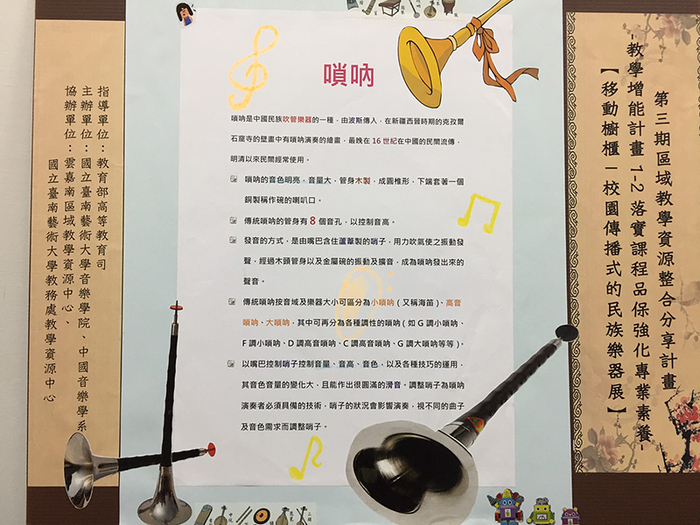 第三期區域教學資源整合分享計畫
-教學增能計畫 1-2 落實課程品保強化專業素養-
【移動櫥櫃－校園傳播式的民族樂器展】
嗩吶
嗩吶是中國民族吹管樂器的一種，由波斯傳人，在新疆西晉時期的克孜爾
石窟寺的壁畫中有嗩吶演奏的繪畫，最晚在 16 世紀在中國的民間流傳，
明清以來民間經常使用。
嗩吶的音色明亮，音量大，管身木製，成圓椎形，下端套著一個
銅製稱作碗的喇叭口。
傳統嗩吶的管身有 8 個音孔，以控制音高。
發音的方式，是由嘴巴含住蘆葦製的哨子，用力吹氣使之振動發
聲，經過木頭管身以及金屬碗的振動及擴音，成為嗩吶發出來的
聲音。
傳統嗩吶按音域及樂器大小可區分為小嗩吶（又稱海笛）、高音
嗩吶、大嗩吶，其中可再分為各種調性的嗩吶（如 G 調小嗩吶、
F 調小嗩吶、D 調高音嗩吶、C 調高音嗩吶、G 調大嗩吶等等）。
以嘴巴控制哨子控制音量、音高、音色，以及各種技巧的運用，
其音色音量的變化大，且能作出很圓滿的滑音。調整哨子為嗩吶
演奏者必須具備的技術，哨子的狀況會影響演奏，視不同的曲子
及音色需求而調整哨子。
指導單位：教育部高等教育司
主辦單位：國立臺南藝術大學音樂學院、中國音樂學系
協辦單位：雲嘉南區域教學資源中心、
國立臺南藝術大學教務處教學資源中心